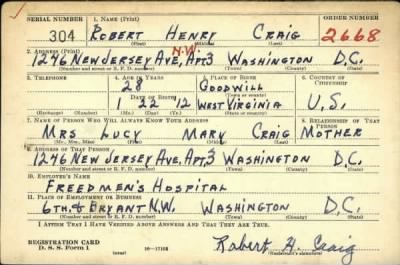 SERIAL NUMBER 1. NAME (Print) ORDER NUMBER
304 ROBERT HENRY CRAIG 2668
(First) (Middle) (Last)
2. ADDRESS (Print) N.W.
1246 NEW JERSEY AVE, APT3 WASHINGTON D.C.
(Number and street or R. F. D. number) (Town) (County) (State)
3. TELEPHONE 4. AGE IN YEARS 5. PLACE OF BIRTH 6. COUNTRY OF CITIZENSHIP
28 GOODWILL
DATE OF BIRTH (Town or county)
1 22 12 WEST VIRGINIA U.S.
(Mo.) (Day) (Yr.) (State or country)
7. NAME OF PERSON WHO WILL ALWAYS KNOW YOUR ADDRESS 8. RELATIONSHIP OF THAT PERSON
MRS LUCY MARY CRAIG MOTHER
(Mr., Mrs., Miss) (First) (Middle) (Last)
9. ADDRESS OF THAT PERSON
1246 NEW JERSEY AVE, APT3 WASHINGTON D.C.
(Number and street or R. F. D. number) (Town) (County) (State)
10. EMPLOYER'S NAME
FREEDMEN'S HOSPITAL
11. PLACE OF EMPLOYMENT OR BUSINESS
6TH & BRYANT N.W. WASHINGTON D.C.
(Number and street or R. F. D. number) (Town) (County) (State)
I AFFIRM THAT I HAVE VERIFIED ABOVE ANSWERS AND THAT THEY ARE TRUE.
REGISTRATION CARD
D. S. S. Form 1 16—17105 Robert H. Craig
(Registrant's signature)